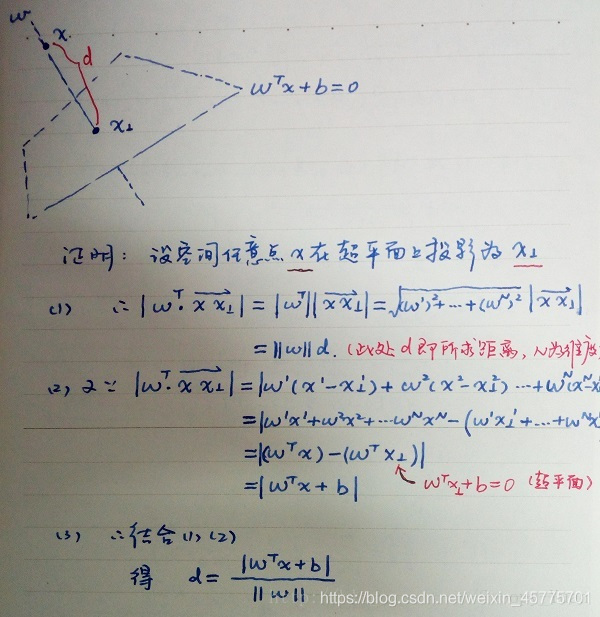 w
x
d
x⊥
wᵀx+b=0
证明: 设空间任意点 x 在超平面上投影为 x⊥
(1) ∵ |wᵀ·xx⊥| = |wᵀ||xx⊥| = √((w¹)²+…+(wᴺ)²) |xx⊥|
= ||w||d. (此处 d 即所求距离, N为维度
(2) 又∵ |wᵀ·xx⊥| = |w¹(x¹-x⊥¹) + w²(x²-x⊥²) … + wᴺ(xᴺ-x
= |w¹x¹+w²x²+…wᴺxᴺ-(w¹x⊥¹+…+wᴺx
= |(wᵀx)-(wᵀx⊥)|
= |wᵀx+b| wᵀx⊥+b=0 (超平面)
(3) ∴结合(1)、(2)
得 d= |wᵀx+b| / ||w||
https://blog.csdn.net/weixin_45775701